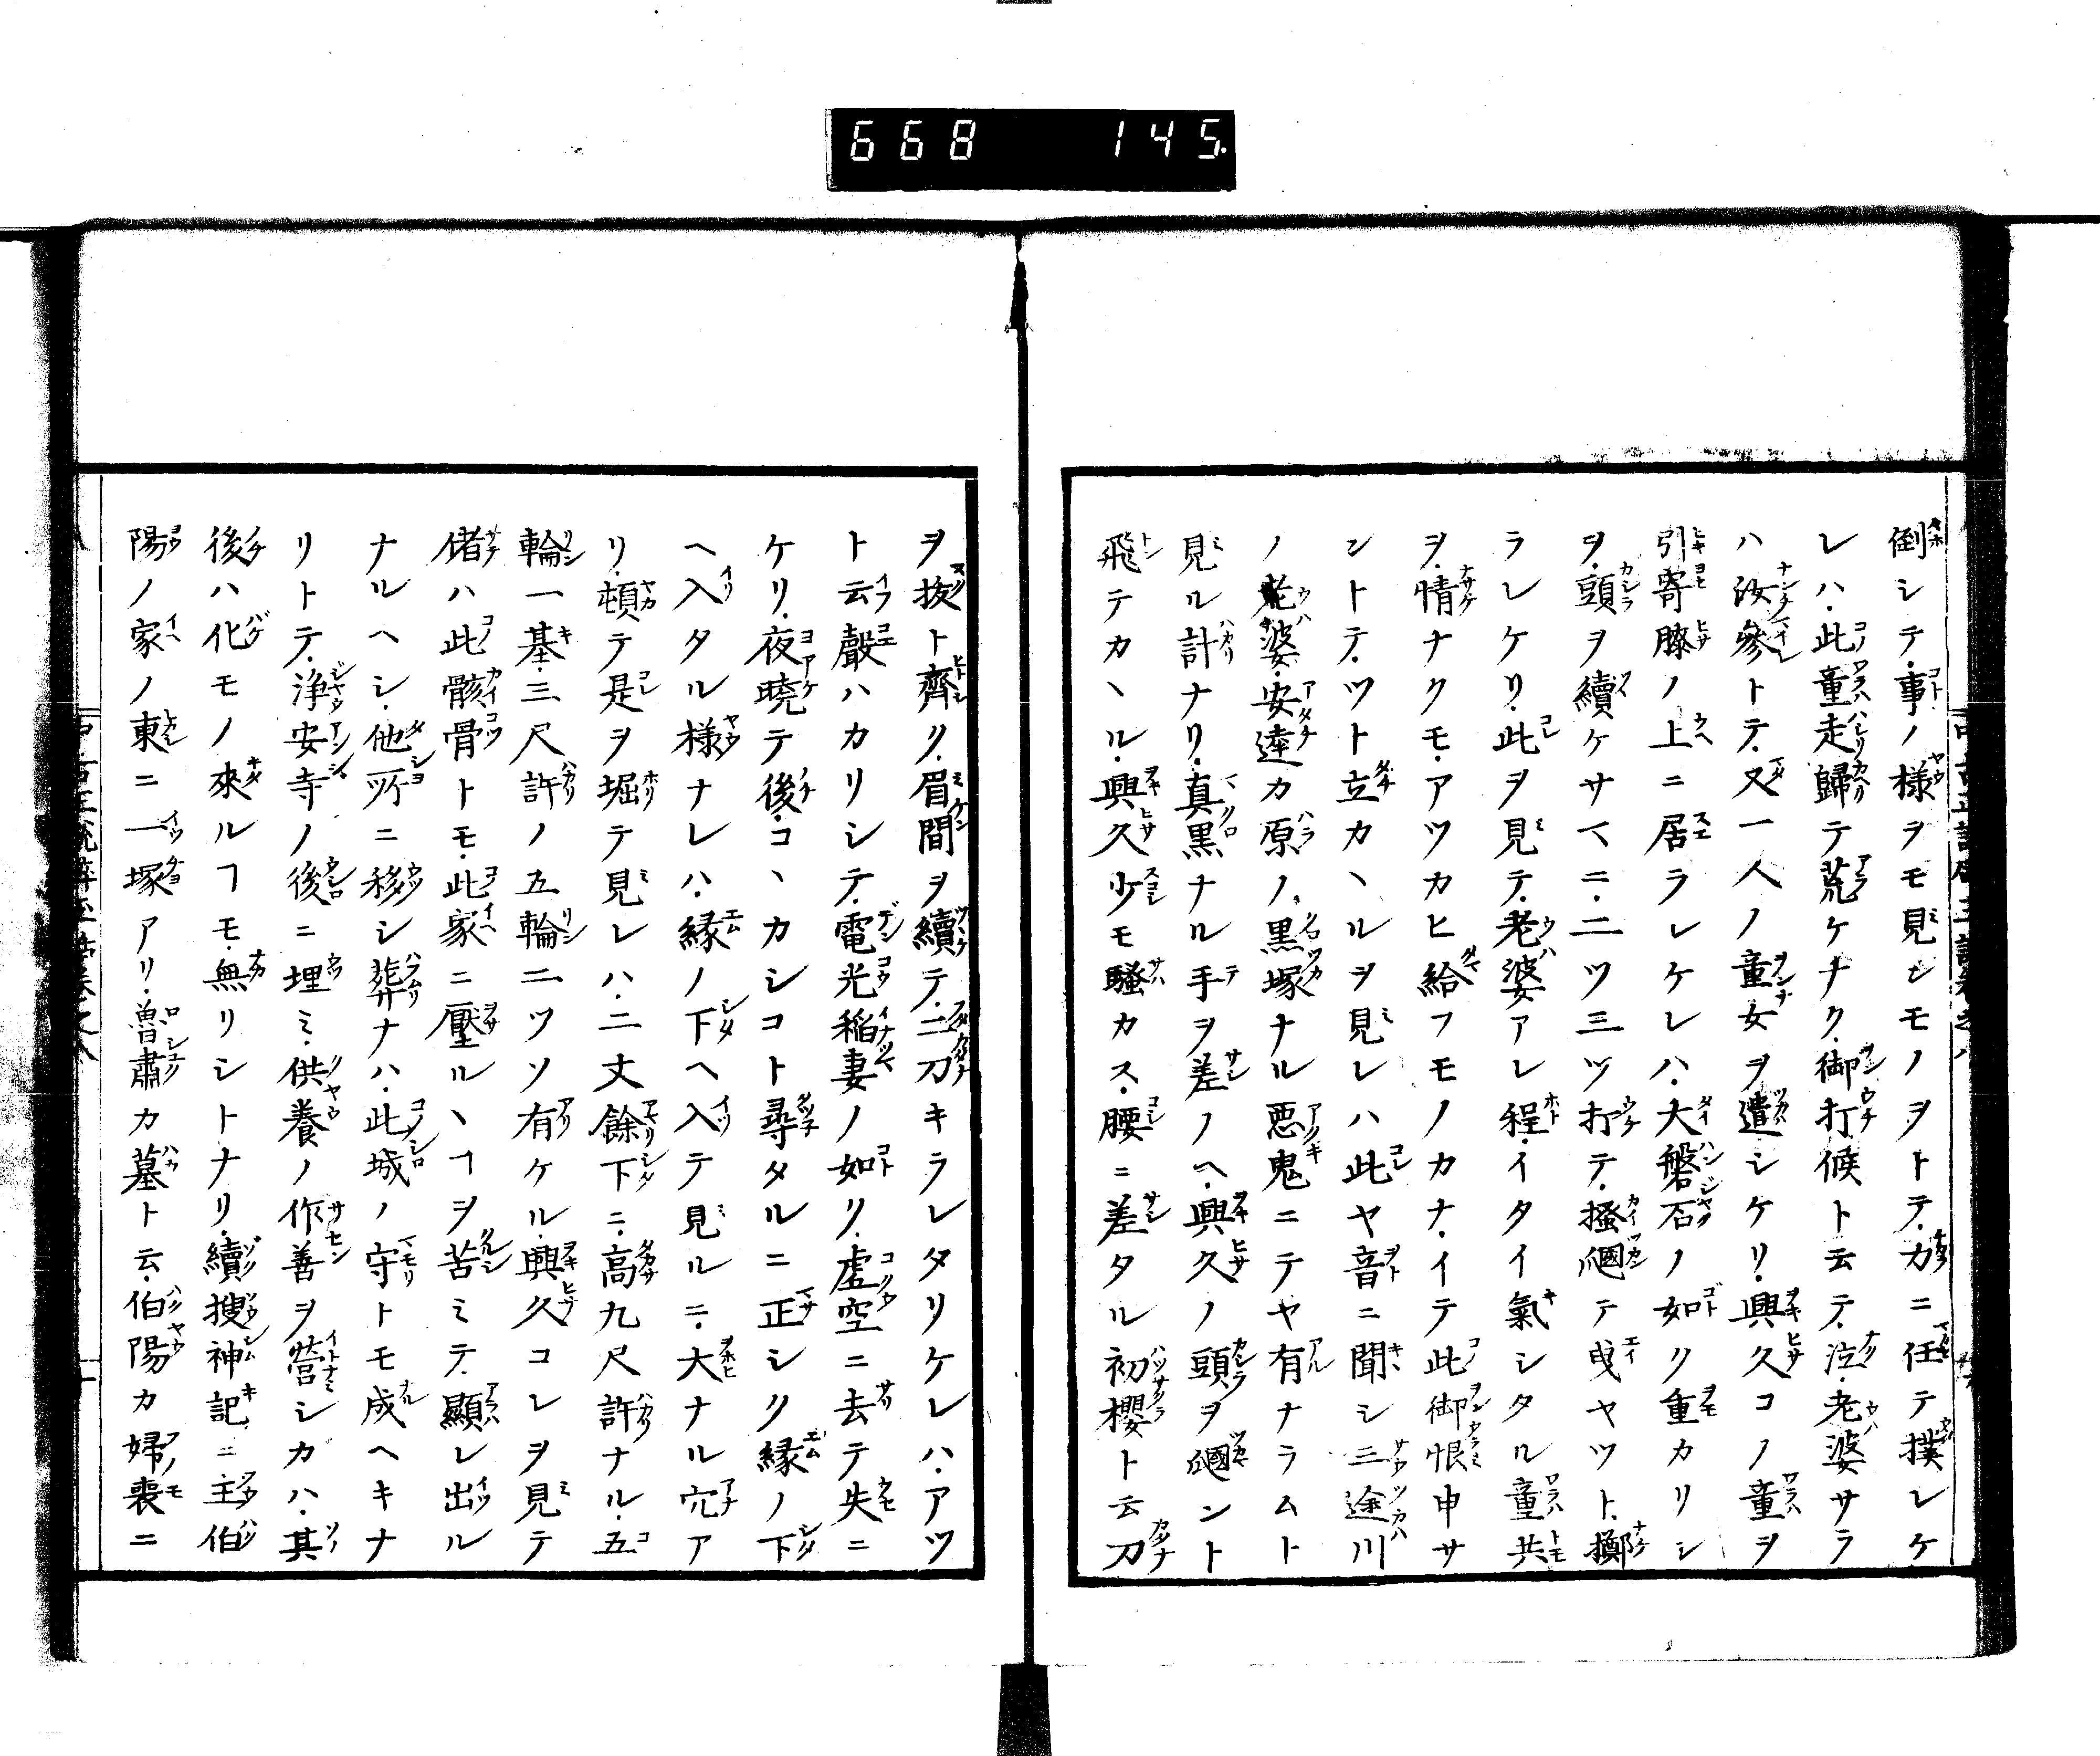 668 145
倒シテ事ノ様ヲモ見シモノヲトテ力ニ任テ撲レケ
レハ此童走歸テ荒ケナク御打候ト云テ泣老婆サラ
ハ汝參トテ又一人ノ童女ヲ遣シケリ興久コノ童ヲ
引寄膝ノ上ニ居ラレケレハ大磐石ノ如ク重カリシ
ヲ頭ヲ續ケサマニ二ツ三ツ打テ掻𢯲テ曳ヤツト擲
ラレケリ此ヲ見テ老婆アレ程イタイ氣シタル童共
ヲ情ナクモアツカヒ給フモノカナイテ此御恨申サ
ントテツト立カヽルヲ見レハ此ヤ音ニ聞シ三途川
ノ老婆安達カ原ノ黒塚ナル悪鬼ニテヤ有ナラムト
見ル計ナリ真黒ナル手ヲ差ノヘ興久ノ頭ヲ𢯲ント
飛テカヽル興久少モ騒カス腰ニ差タル初櫻ト云刀
ヲ抜ト齊ク眉間ヲ續テ二刀キラレタリケレハアツ
ト云聲ハカリシテ電光稲妻ノ如ク虚空ニ去テ失ニ
ケリ夜暁テ後コヽカシコト尋タルニ正シク縁ノ下
ヘ入タル様ナレハ縁ノ下ヘ入テ見ルニ大ナル穴ア
リ頓テ是ヲ堀テ見レハ二丈餘下ニ高九尺許ナル五
輪一基三尺許ノ五輪二ツソ有ケル興久コレヲ見テ
偖ハ此骸骨トモ此家ニ壓ルヽヿヲ苦ミテ顯レ出ル
ナルヘシ他所ニ移シ葬ナハ此城ノ守トモ成ヘキナ
リトテ浄安寺ノ後ニ埋ミ供養ノ作善ヲ營シカハ其
後ハ化モノ來ルヿモ無リシトナリ續捜神記ニ主伯
陽ノ家ノ東ニ一塚アリ魯肅カ墓ト云伯陽カ婦喪ニ